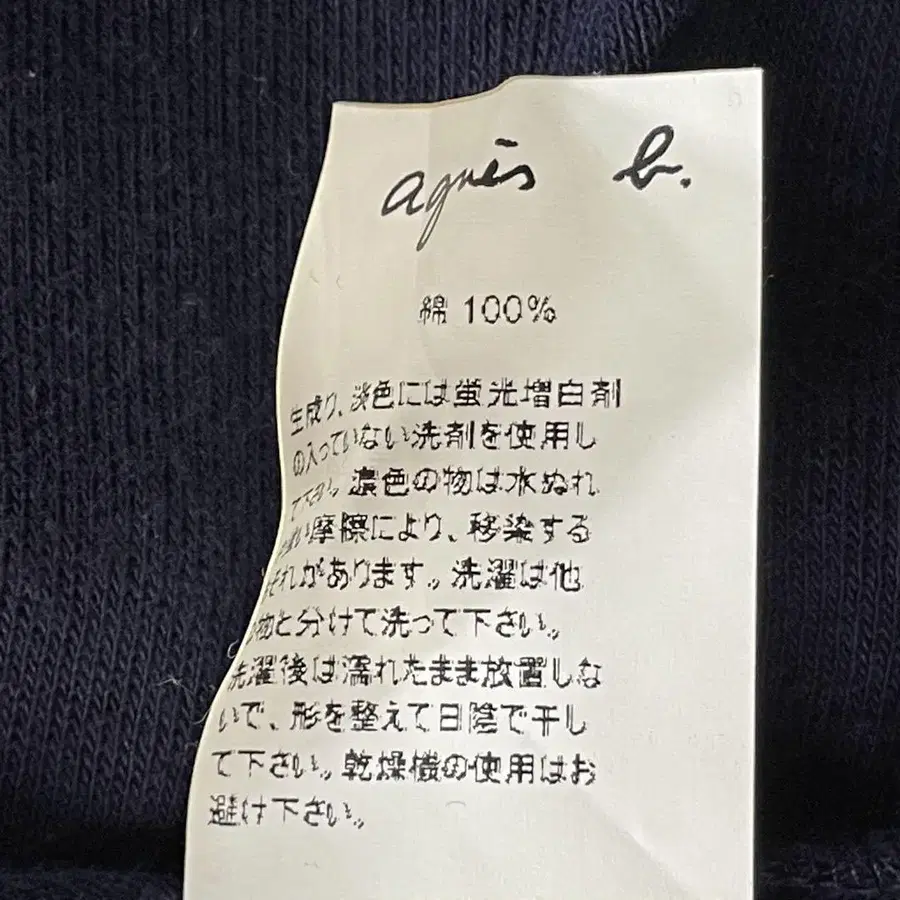 agnès b.
綿 100%
生成り、淡色には蛍光増白剤
の入っていない洗剤を使用し
て下さい。濃色の物は水ぬれ
い摩擦により、移染する
それがあります。洗濯は他
物と分けて洗って下さい。
洗濯後は濡れたまま放置しな
いで、形を整えて日陰で干し
て下さい。乾燥機の使用はお
避け下さい。